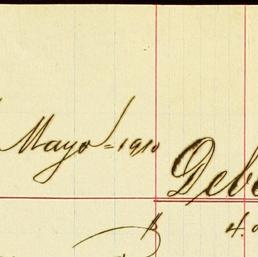 Mayo = 1910
Debe
$ 4.0